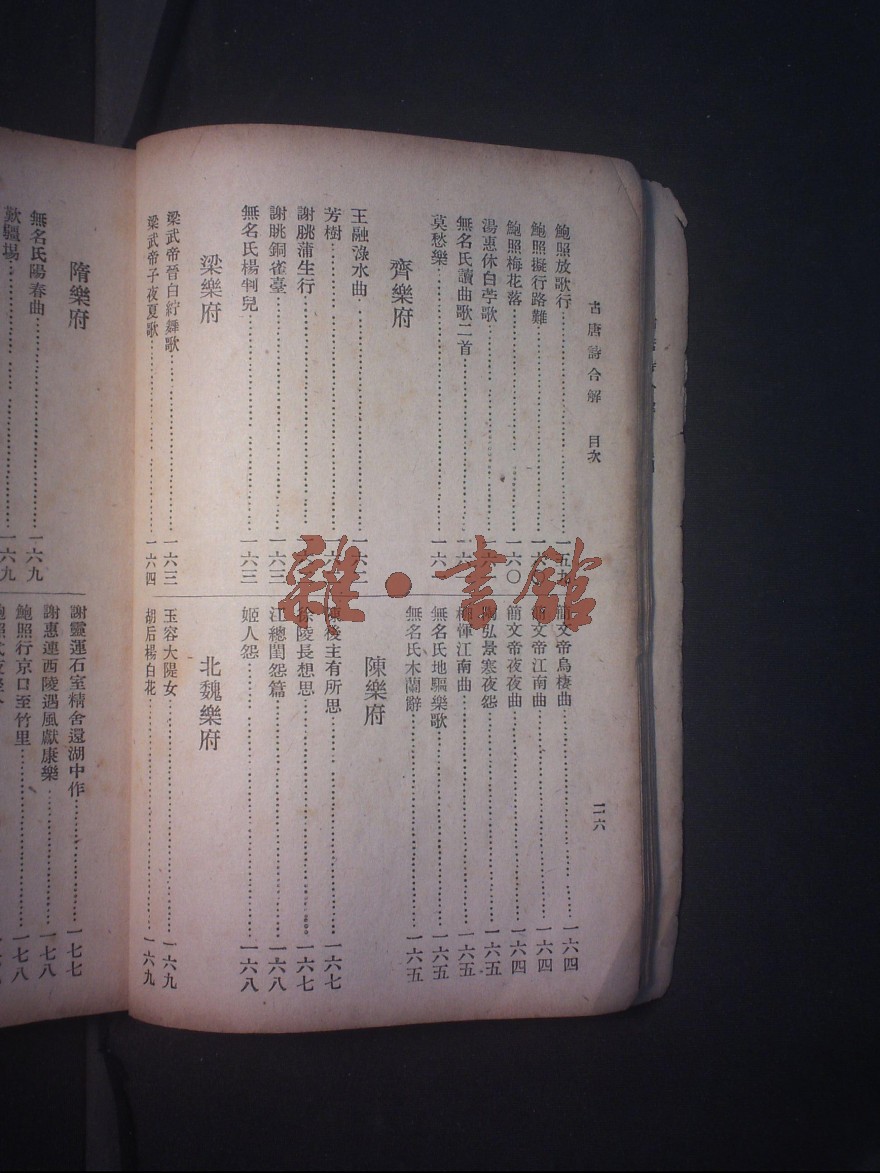 古唐詩合解 目次
二六
鮑照放歌行 一五九
鮑照擬行路難
鮑照梅花落 一六〇
湯惠休白苧歌
無名氏讀曲歌二首
莫愁樂
齊樂府
王融淥水曲
芳樹
謝朓蒲生行
謝朓銅雀臺 一六三
無名氏楊叛兒 一六三
梁樂府
梁武帝晉白紵舞歌 一六三
梁武帝子夜夏歌 一六四
簡文帝烏棲曲 一六四
簡文帝江南曲 一六四
簡文帝夜夜曲 一六四
弘景寒夜怨 一六五
柳惲江南曲 一六五
無名氏地驅樂歌 一六五
無名氏木蘭辭 一六五
陳樂府
陳後主有所思 一六七
徐陵長想思 一六七
江總閨怨篇 一六八
姬人怨 一六八
北魏樂府
王容大隄女 一六九
胡后楊白花 一六九
隋樂府
無名氏陽春曲 一六九
歎疆場 一六九
謝靈運石室精舍還湖中作 一七七
謝惠連西陵遇風獻康樂 一七八
鮑照行京口至竹里 一七八
雜·書館